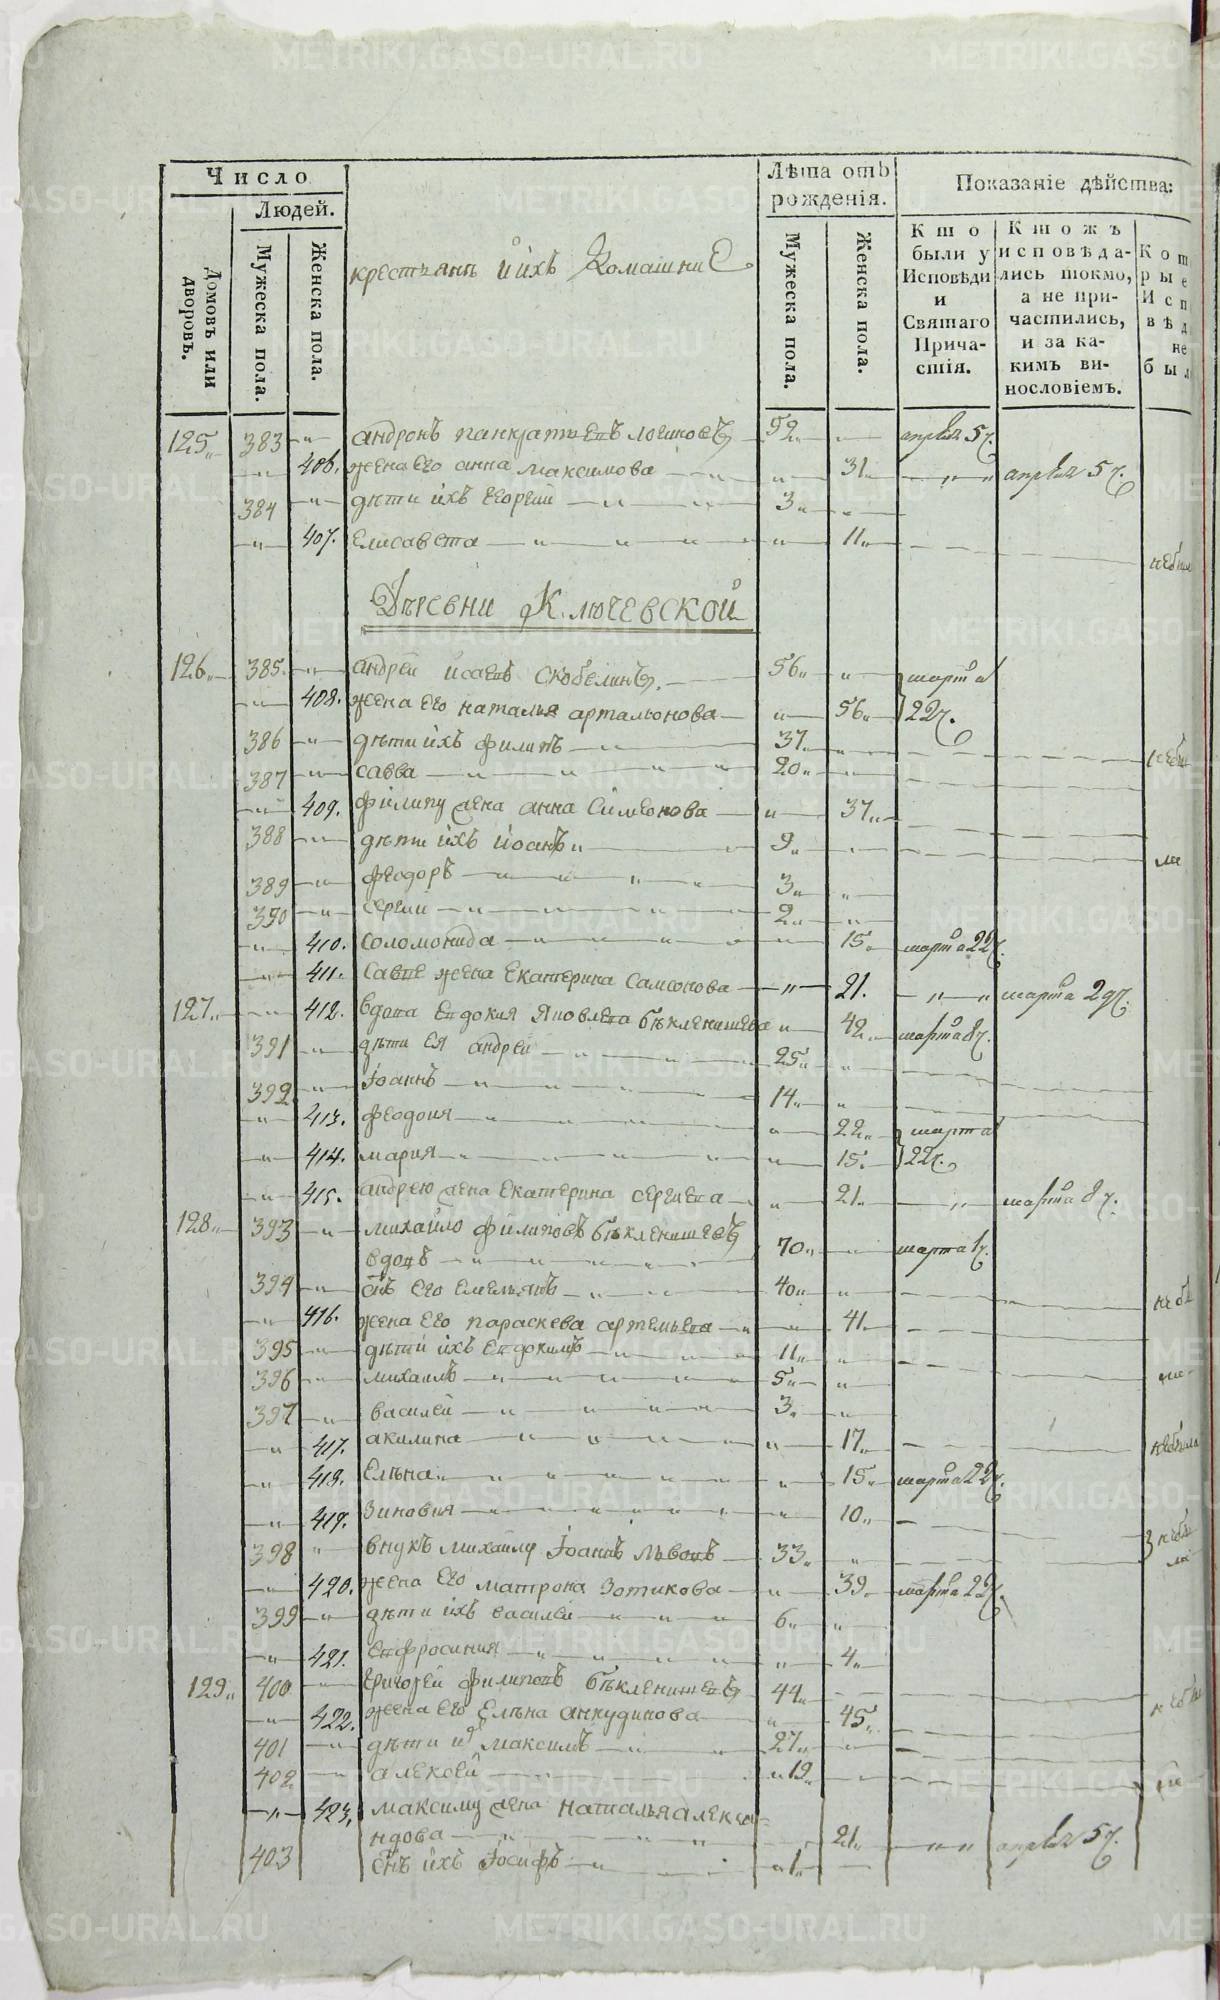 Число
Людей.
Домовъ или дворовъ.
Мужеска пола.
Женска пола.
крестьянъ и ихъ домашние
Лѣта отъ рожденія.
Мужеска пола.
Женска пола.
Показаніе дѣйства:
Кто были у Исповѣди и Святаго Прича-стія.
Ктожъ исповѣда-лись токмо, а не при-частились, и за ка-кимъ ви-нословіемъ.
125 383 андронъ панкратьевъ логиновъ 52 апреля 5ч.
406. жена его анна максимова 31 апреля 5ч.
384 дѣти ихъ георгий 3
407. елисавета 11
Дѣревни Ключевской
126 385 андрей исаевъ скобелинъ. 56 марта
408. жена его наталья артамонова 56 22ч.
386 дѣти ихъ филипъ 37
387 савва 20
409. филипу жена анна симеонова 37
388 дѣти ихъ иоанъ 9
389 феодоръ 3
390 сергии 2
410. соломонида 15 марта 22ч.
411. савве жена екатерина самсонова 21. марта 29ч.
127 412. вдова евдокия яковлева бѣкленищева 42 марта 8ч.
391 дѣти ея андрей 25
392 иоаннъ 14
413. феодосия 22 марта
414. мария 15 22ч.
415. андрею жена екатерина сергиева 21 марта 8ч.
128 393 михайло филиповъ бѣкленищевъ
вдовъ 70 марта 1ч.
394 снъ его емельянъ 40
416. жена его параскева артемьева 41
395 дѣти ихъ евдокимъ 11
396 михаилъ 5
397 василей 3
417. акилина 17 небыла
418. елѣна 15 марта 22ч.
419. зиновия 10
398 внукъ михайлу иоаннъ львовъ 33
420. жена его матрона зотикова 39 марта 22ч.
399 дѣти ихъ василей 6
421. евфросиния 4
129 400 григорей филиповъ бѣкленищевъ 44
422. жена его елѣна анкудинова 45
401 дѣти их максимъ 27
402 алексей 19
423. максиму жена наталья алекса-
ндрова 21 апреля 5ч.
403 снъ ихъ иосифъ 1
METRIKI.GASO-URAL.RU